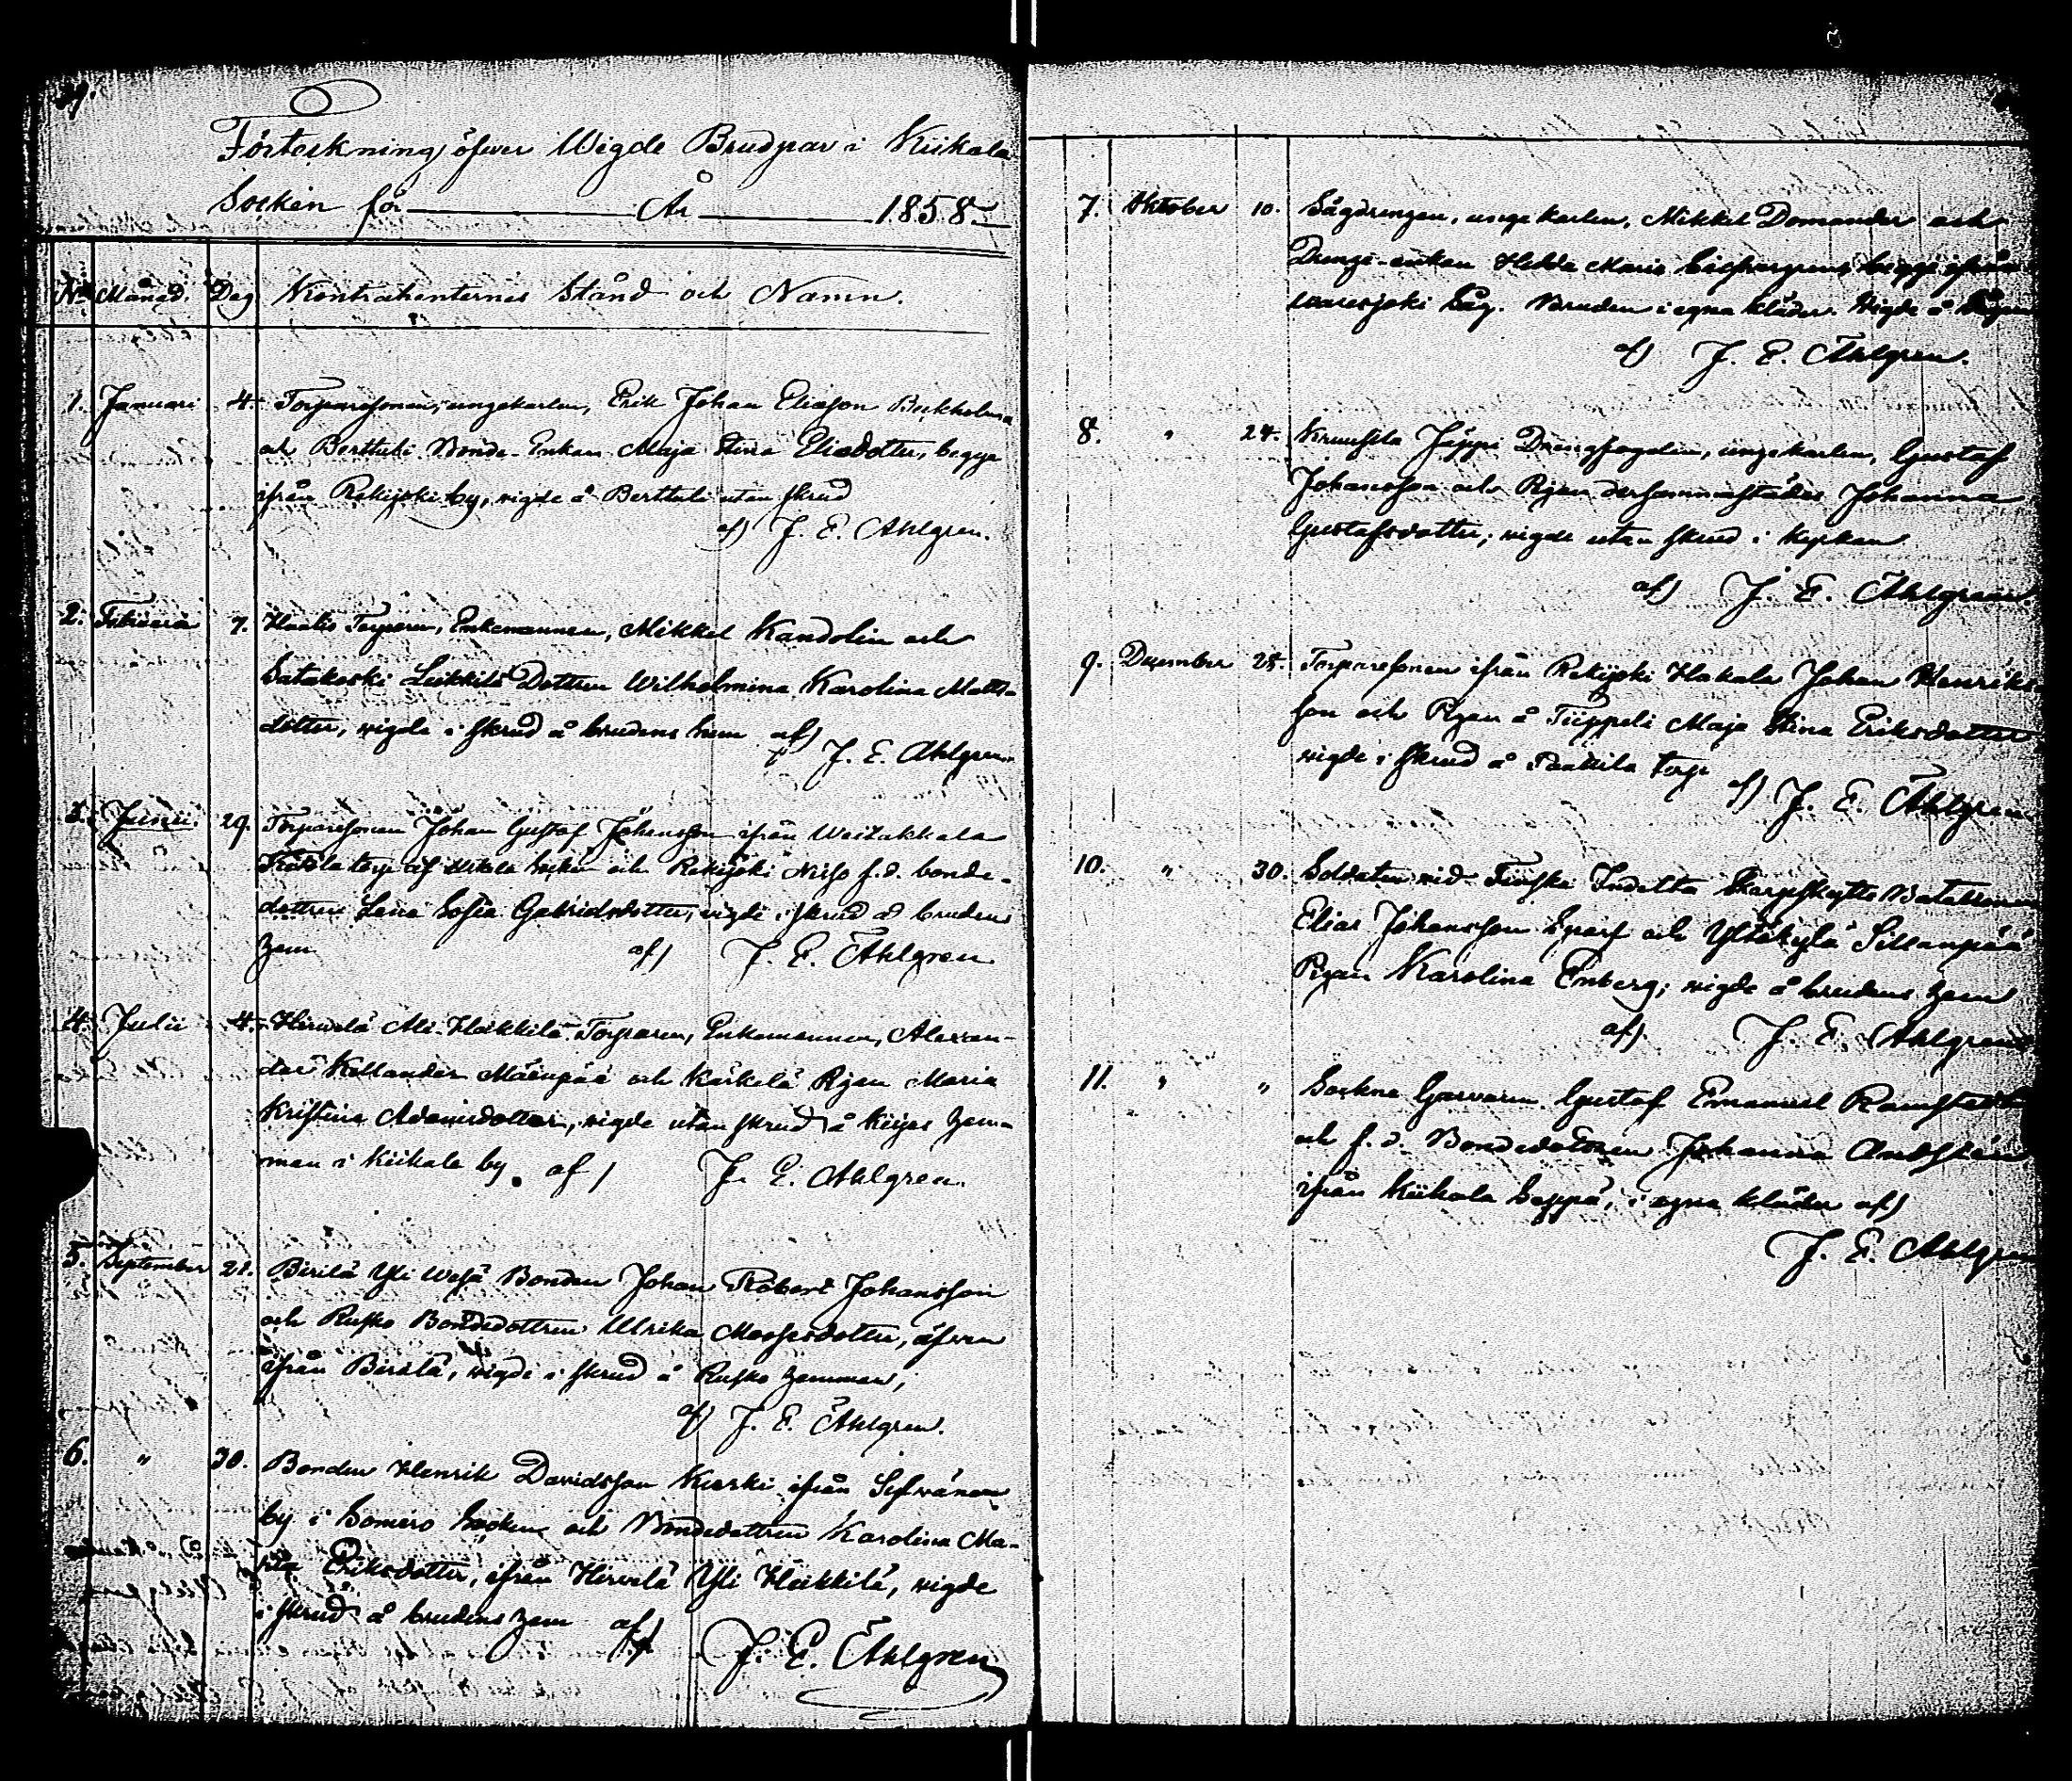 Förteckning öfwer Wigde Brudpar i Kiikala
Socken för År 1858
No Månad. Dag Kontrahenternes Stånd och Namn.
1. Januari 4. Torparesonen, ungekarlen, Erik Johan Eliason
och Berttuli Bonde-Enkan Maja Stina Eliædotter, begge
ifrån Rekijoki by, wigde å Berttuli utan skrud
af) J. E. Ahlgren.
2. Februari 7. Torparen, Enkemannen, Mikkel Kandolin och
Satakoski Dottren Wilhelmina Karolina Matts-
dotter, wigde i skrud å brudens hem af)
J. E. Ahlgren.
3. Junii. 29. Torparesonen Johan Gustaf Johansson ifrån
torp af Socken och Rekijoki f.d. bonde-
dottren Lena Sofia Gabrielsdotter, wigde i skrud å brudens
hem af) J. E. Ahlgren
4. Julii 4. Hirwelä Ali-Heikkilä Torparen, Enkemannen, Alexan-
der Kellander Mäenpää och Kärkelä Pigan Maria
Kristina Adamsdotter, wigde utan skrud å hem-
man i Kiikala by. af) J. E. Ahlgren.
5. September 21. Yli Bonden Johan Robert Johansson
och Rusko Bondedottren Ulrika Mosesdotter, äfwen
ifrån, wigde i skrud å Rusko hemman,
af) J. E. Ahlgren.
6. " 30. Bonden Henrik Davidsson ifrån
by i Somero Socken och Bondedottren Karolina Ma-
Eriksdotter, ifrån Hirwelä Yli Heikkilä, wigde
i skrud å brudens hem af)
J. E. Ahlgren
7. Oktober 10. Sågdrengen, unge karlen, Mikkel Domander och
Drenge-enkan Hedda Maria begge ifrån
Såg. Bruden i egna kläder. Wigde å
af) J. E. Ahlgren.
8. " 24. Drengfogden, ungekarlen, Gustaf
Johansson och Pigan dersammastädes Johanna
Gustafsdotter, wigde utan skrud i kyrkan
af) J. E. Ahlgren.
9. December 28. Torparesonen ifrån Rekijoki Hakala Johan Henriks
son och Pigan å Maja Stina Eriksdotter
wigde i skrud å torp
af) J. E. Ahlgren
10. " 30. Soldaten wid Finska Indelta Skarpskytte Bataljon
Elias Johansson Sparf och Yltäkylä Sillanpää
Pigan Karolina Enberg, wigde å brudens hem
af) J. E. Ahlgren
11. " " Sockne Garfwaren Gustaf Emanuel Ramstedt
och f.d. Bondedottren Johanna
ifrån Kiikala Seppä, i egna kläder af)
J. E. Ahlgren